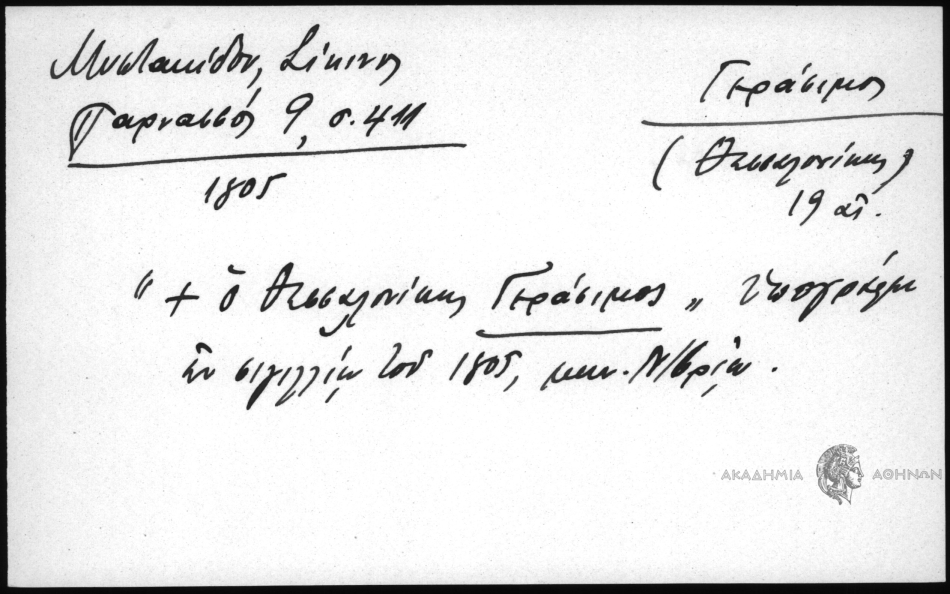 Μυστακίδου, Σίκινος
Παρνασσός 9, σ. 411
1805
Γεράσιμος
(Θεσσαλονίκης)
19 αἰ.
" + ὁ Θεσσαλονίκης Γεράσιμος „ ὑπογράφει
ἐν σιγιλλίῳ τοῦ 1805, μην. Ν/βρίῳ.
ΑΚΑΔΗΜΙΑ ΑΘΗΝΩΝ